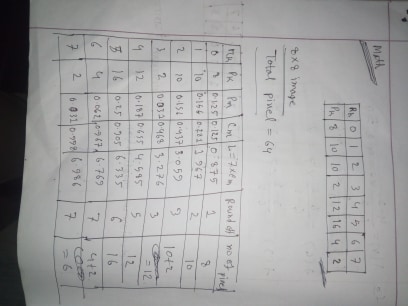 Math
Rk 0 1 2 3 4 5 6 7
Pk 8 10 10 2 12 16 4 2
8x8 image
Total pixel = 64
Rk Pk Pm Cm L=7xCm Round off no of pixel
0 8 0.125 0.125 0.875 1 8
1 10 0.156 0.281 1.967 2 10
2 10 0.156 0.437 3.059 3 10+2
3 2 0.031 0.468 3.276 3 =12
4 12 0.187 0.655 4.585 5 12
5 16 0.25 0.905 6.335 6 16
6 4 0.062 0.967 6.769 7 4+2
7 2 0.031 0.998 6.986 7 =6